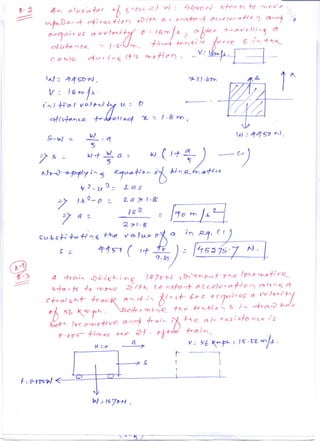 8.2 An elevator of gross wt W = 4450N starts to move
upward direction with a constant acceleration and
acquires a velocity v = 18m/s, after travelling a
distance = 1.8m. Find tensile force S in the
cable during its motion.
V = 18m/s
W = 4450N.
V = 18m/s.
initial velocity u = 0
distance travelled x = 1.8m.
x = 1.8m
W = 4450N.
S-W = W/g . a
⇒ S = W + W/g a = W (1 + a/g) — (1)
Now applying equation of kinematics
v² - u² = 2as
⇒ 18² - 0 = 2a × 1.8
⇒ a = 18² / 2×1.8 = 90 m/s²
Substituting the value of a in eq. (1)
S = 4450 (1 + 90/9.81) = 45275.7 N.
8.3 A train weighing 1870N without the locomotive
starts to move with constant acceleration along a
straight track and in first 60s acquires a velocity
of 56 kmph. Determine the tension S in drawbar
betn locomotive and train if the air resistance is
0.005 times the wt. of the train.
u = 0
a
V = 56 kmph = 15.56 m/s.
S
F = 0.005W
W = 1870N.